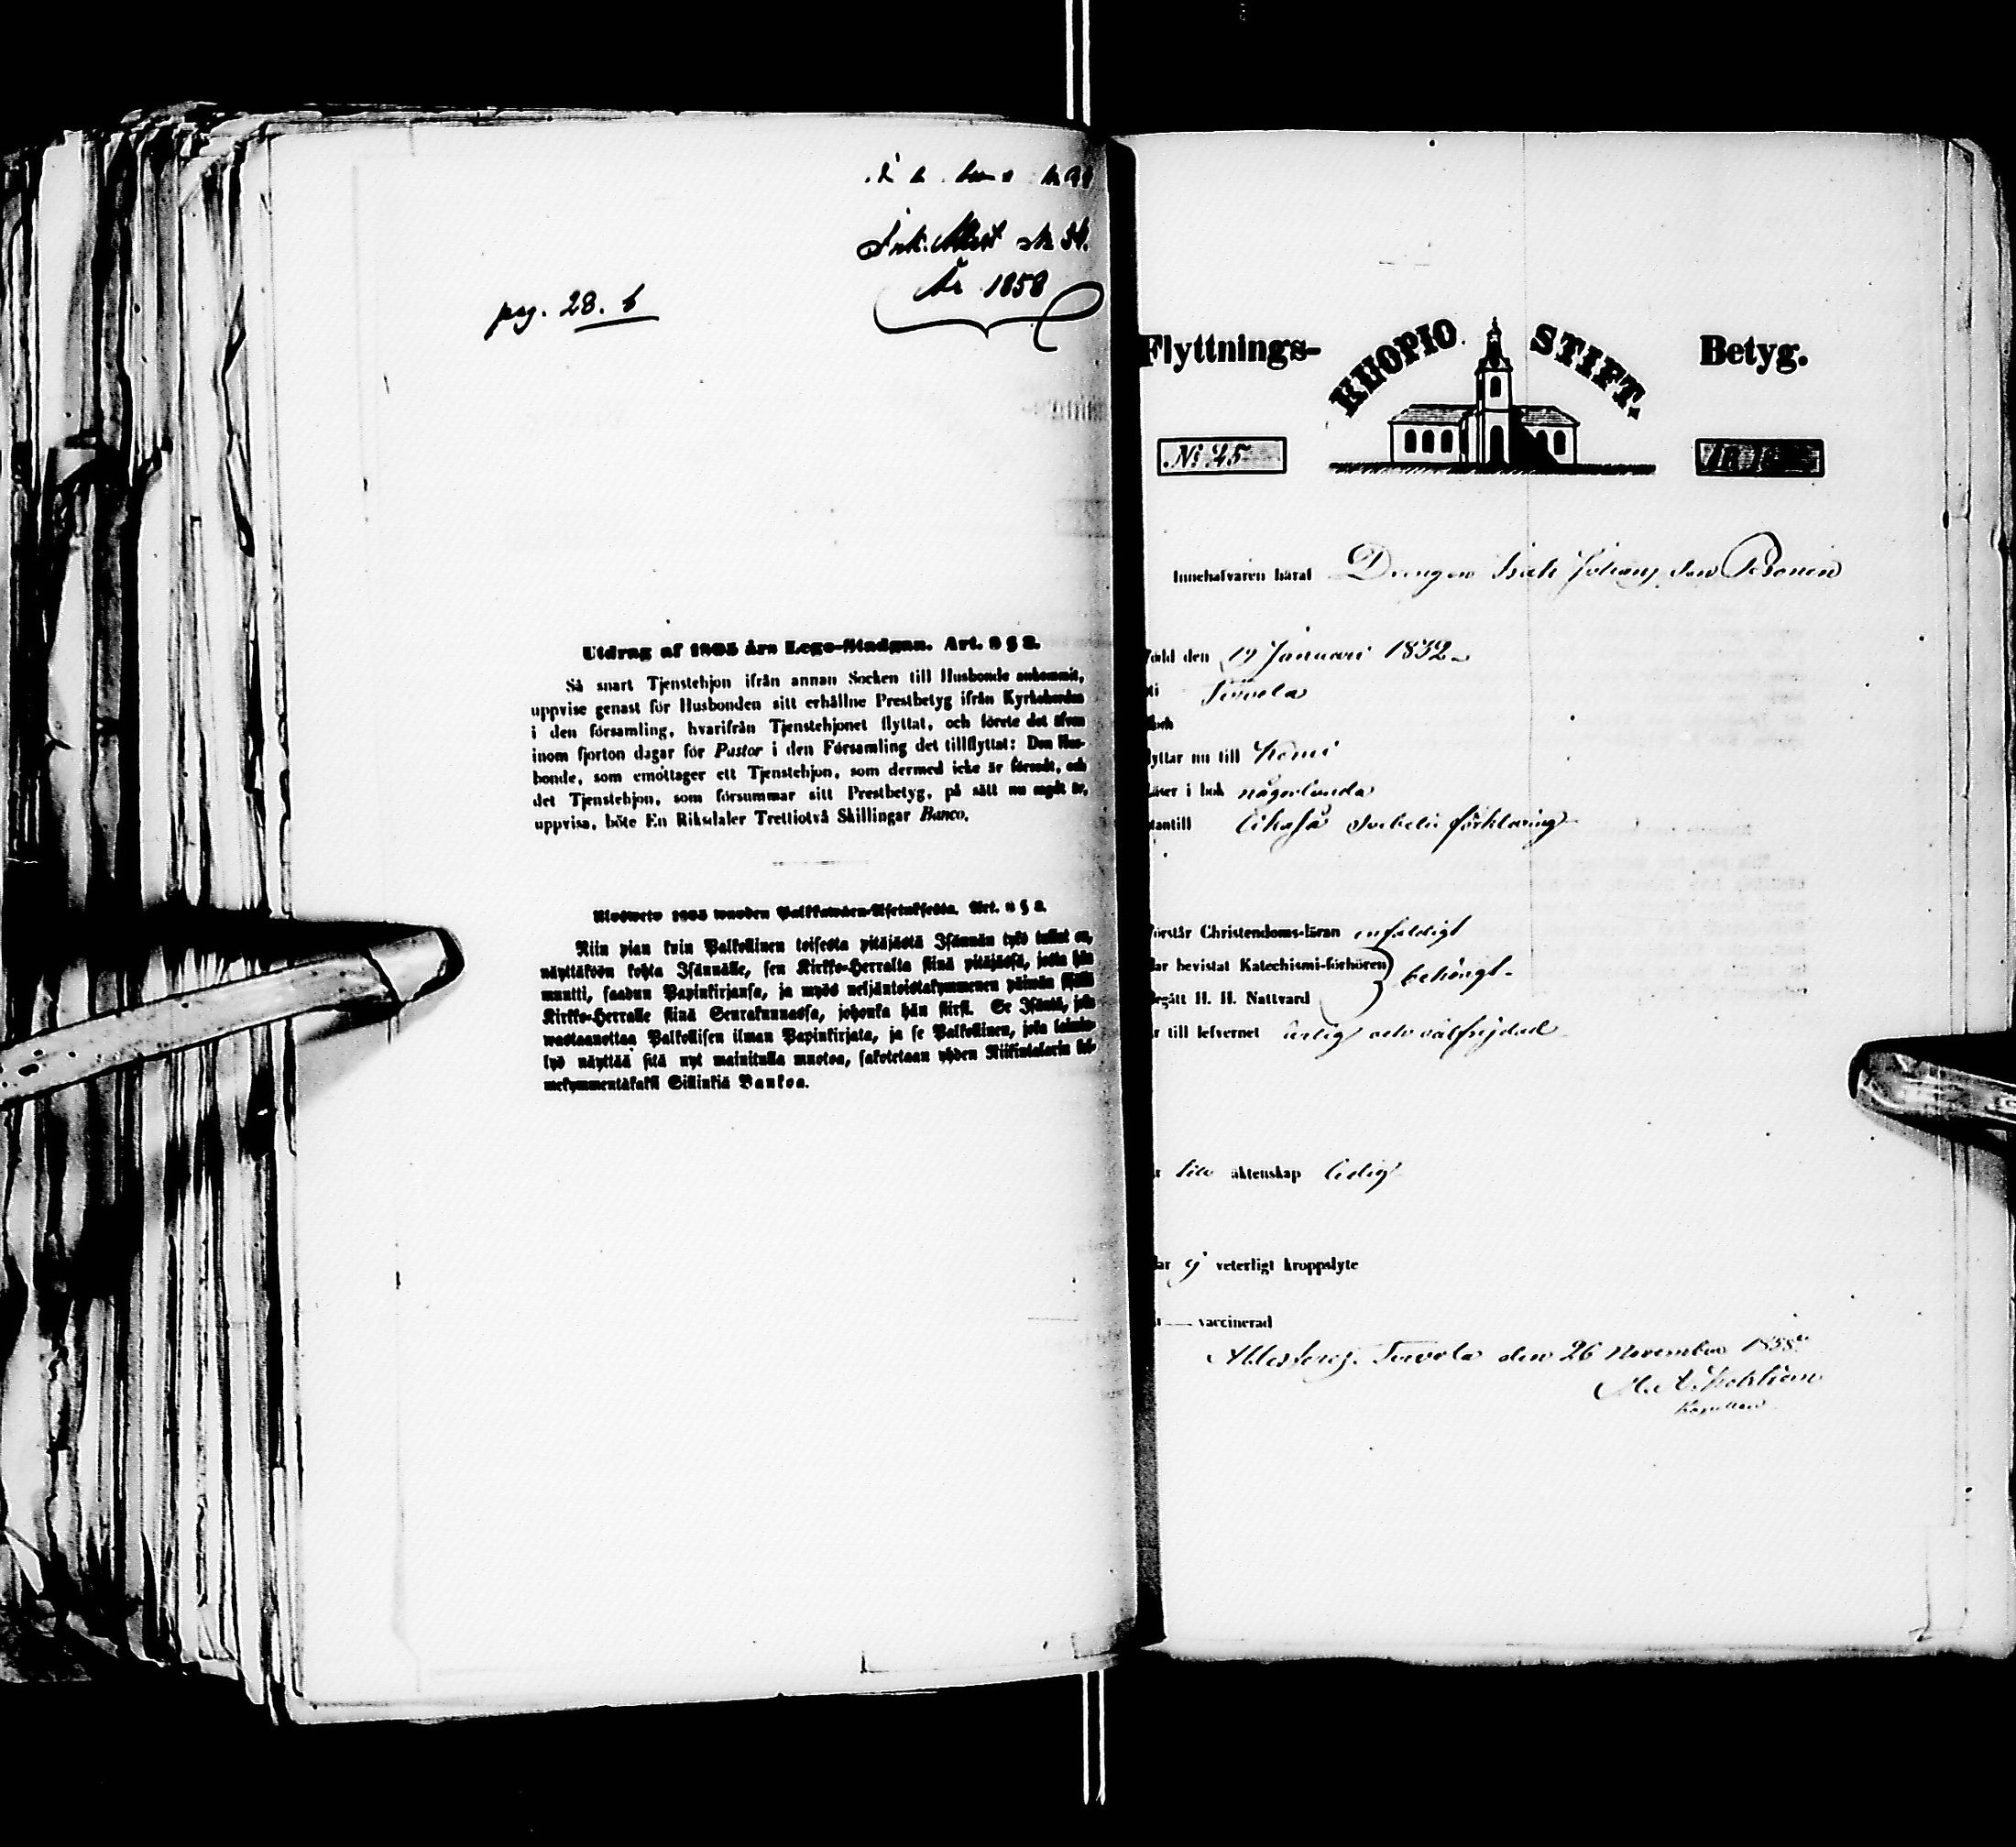 Ink. Attest № 34.
År 1858
pag. 28. b
Utdrag af 1805 års Lego-Stadgan. Art. 8 § 2.
Så snart Tjenstehjon ifrån annan Socken till Husbonde ankommit,
uppvise genast för Husbonden sitt erhållne Prestbetyg ifrån Kyrkoherden
i den församling, hvarifrån Tjenstehjonet flyttat, och förete det äfven
inom fjorton dagar för Pastor i den Församling det tillflyttat: Den Hus-
bonde, som emottager ett Tjenstehjon, som dermed icke är försedt, och
det Tjenstehjon, som försummar sitt Prestbetyg, på sätt nu sagdt är,
uppvisa, böte En Riksdaler Trettiotvå Skillingar Banco.
Ulosweto 1805 wuoden Palkkawäen-Asetuksesta. Art. 8 § 2.
Niin pian kuin Palkollinen toisesta pitäjästä Isännän tykö tullut on,
näyttäköön kohta Isännälle, sen Kirkko-Herralta siinä pitäjässä, josta hän
muutti, saadun Papinkirjansa, ja myös neljäntoistakymmenen päiwän sisällä
Kirkko-Herralle siinä Seurakunnassa, johonka hän siirsi. Se Isäntä, joka
wastaanottaa Palkollisen ilman Papinkirjata, ja se Palkollinen, joka laimin-
lyö näyttää sitä nyt mainitulla muotoa, sakotetaan yhden Riikintalarin kol-
mekymmentäkaksi Sillinkiä Bankoa.
Flyttnings- KUOPIO STIFT. Betyg.
№ 45
Innehafvaren häraf Drängen Isak Johansson Pesonen
född den 19 Januari 1832
i Tervola
och
flyttar nu till Kemi
läser i bok någorlunda
utantill likaså Svebelii förklaring
förstår Christendoms-läran enfaldigt
har bevistat Katechismi-förhören
begått H. H. Nattvard } behörigt
är till lefvernet ärlig och välfrejdad
är till äktenskap ledig
har ej veterligt kroppslyte
är — vaccinerad
Attesteras. Tervola den 26 November 1858
Kapellan